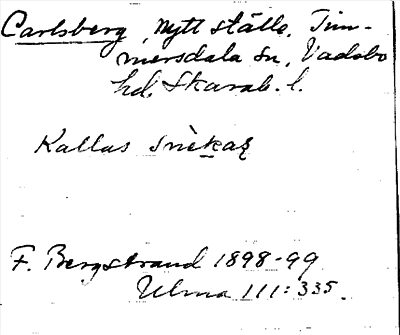 Carlsberg, nytt ställe, Tim-
mersdala sn, Vadsbo
hd. Skarab. l.
Kallas
F. Bergstrand 1898-99
Ulma 111:335.